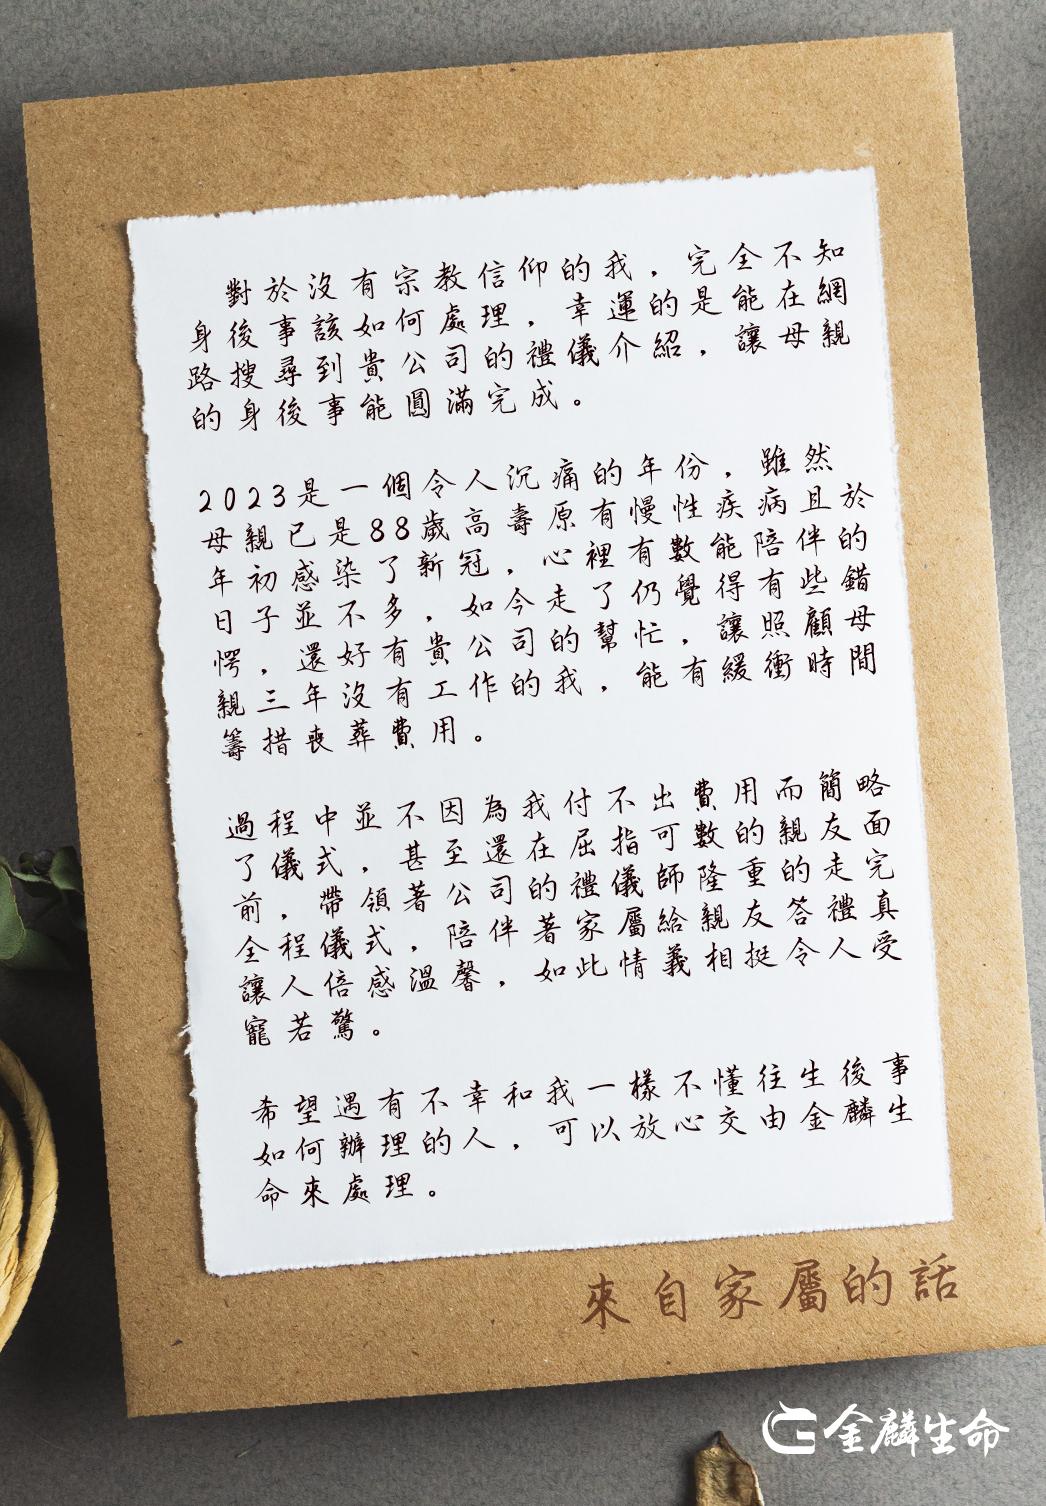 對於沒有宗教信仰的我，完全不知
身後事該如何處理，幸運的是能在網
路搜尋到貴公司的禮儀介紹，讓母親
的身後事能圓滿完成。
2023是一個令人沉痛的年份，雖然
母親已是88歲高壽原有慢性疾病且於
年初感染了新冠，心裡有數能陪伴的
日子並不多，如今走了仍覺得有些錯
愕，還好有貴公司的幫忙，讓照顧母
親三年沒有工作的我，能有緩衝時間
籌措喪葬費用。
過程中並不因為我付不出費用而簡略
了儀式，甚至還在屈指可數的親友面
前，帶領著公司的禮儀師隆重的走完
全程儀式，陪伴著家屬給親友答禮真
讓人倍感溫馨，如此情義相挺令人受
寵若驚。
希望遇有不幸和我一樣不懂往生後事
如何辦理的人，可以放心交由金麟生
命來處理。
來自家屬的話
金麟生命